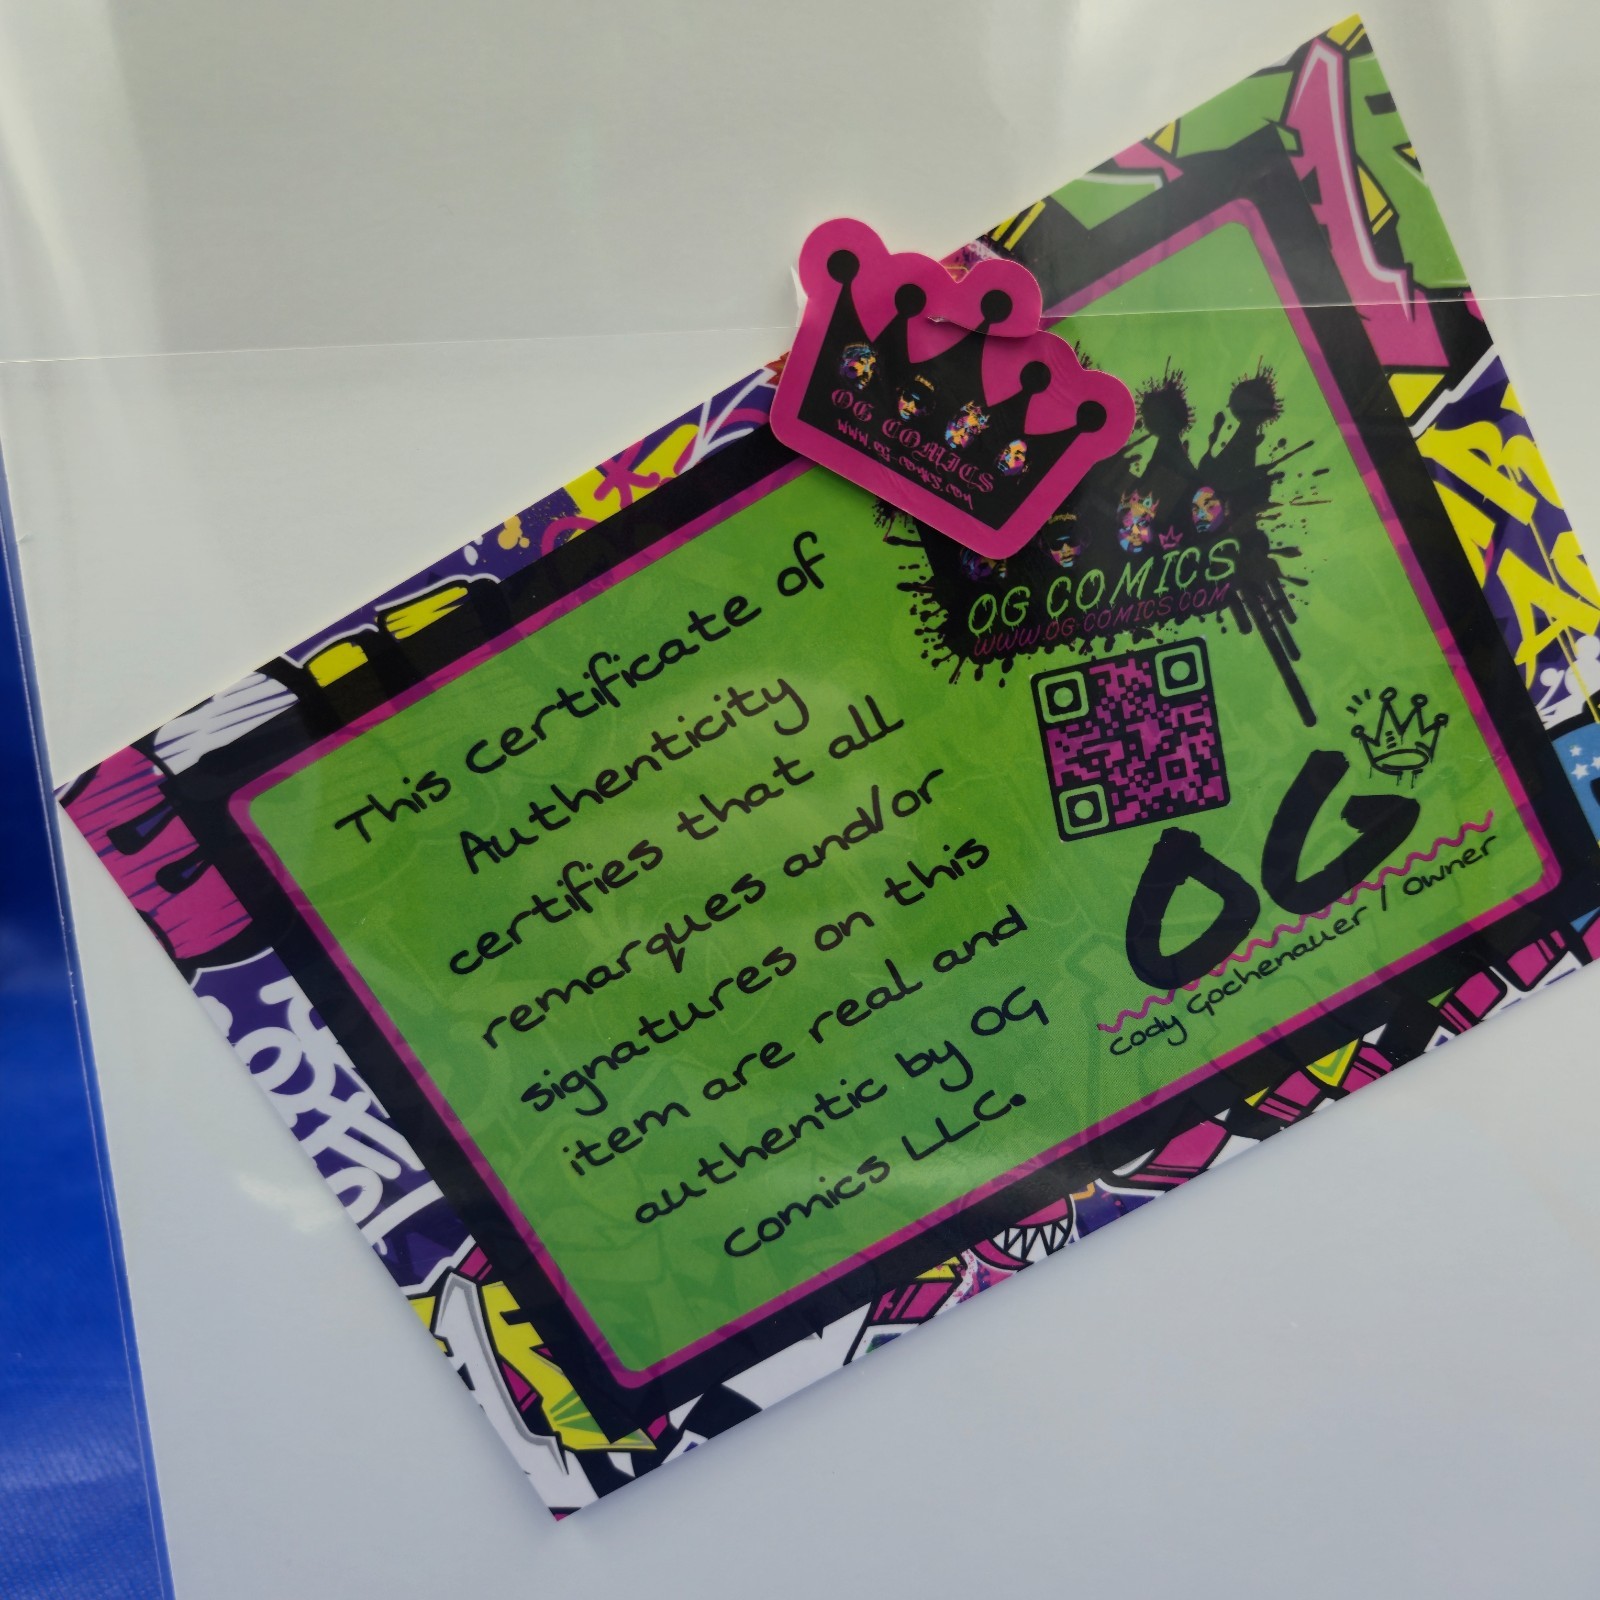 OG COMICS
www.og-comics.com
This certificate of
Authenticity
certifies that all
remarques and/or
signatures on this
item are real and
authentic by OG
Comics LLC.
OG COMICS
WWW.OG-COMICS.COM
OG
Cody Gochenauer / Owner